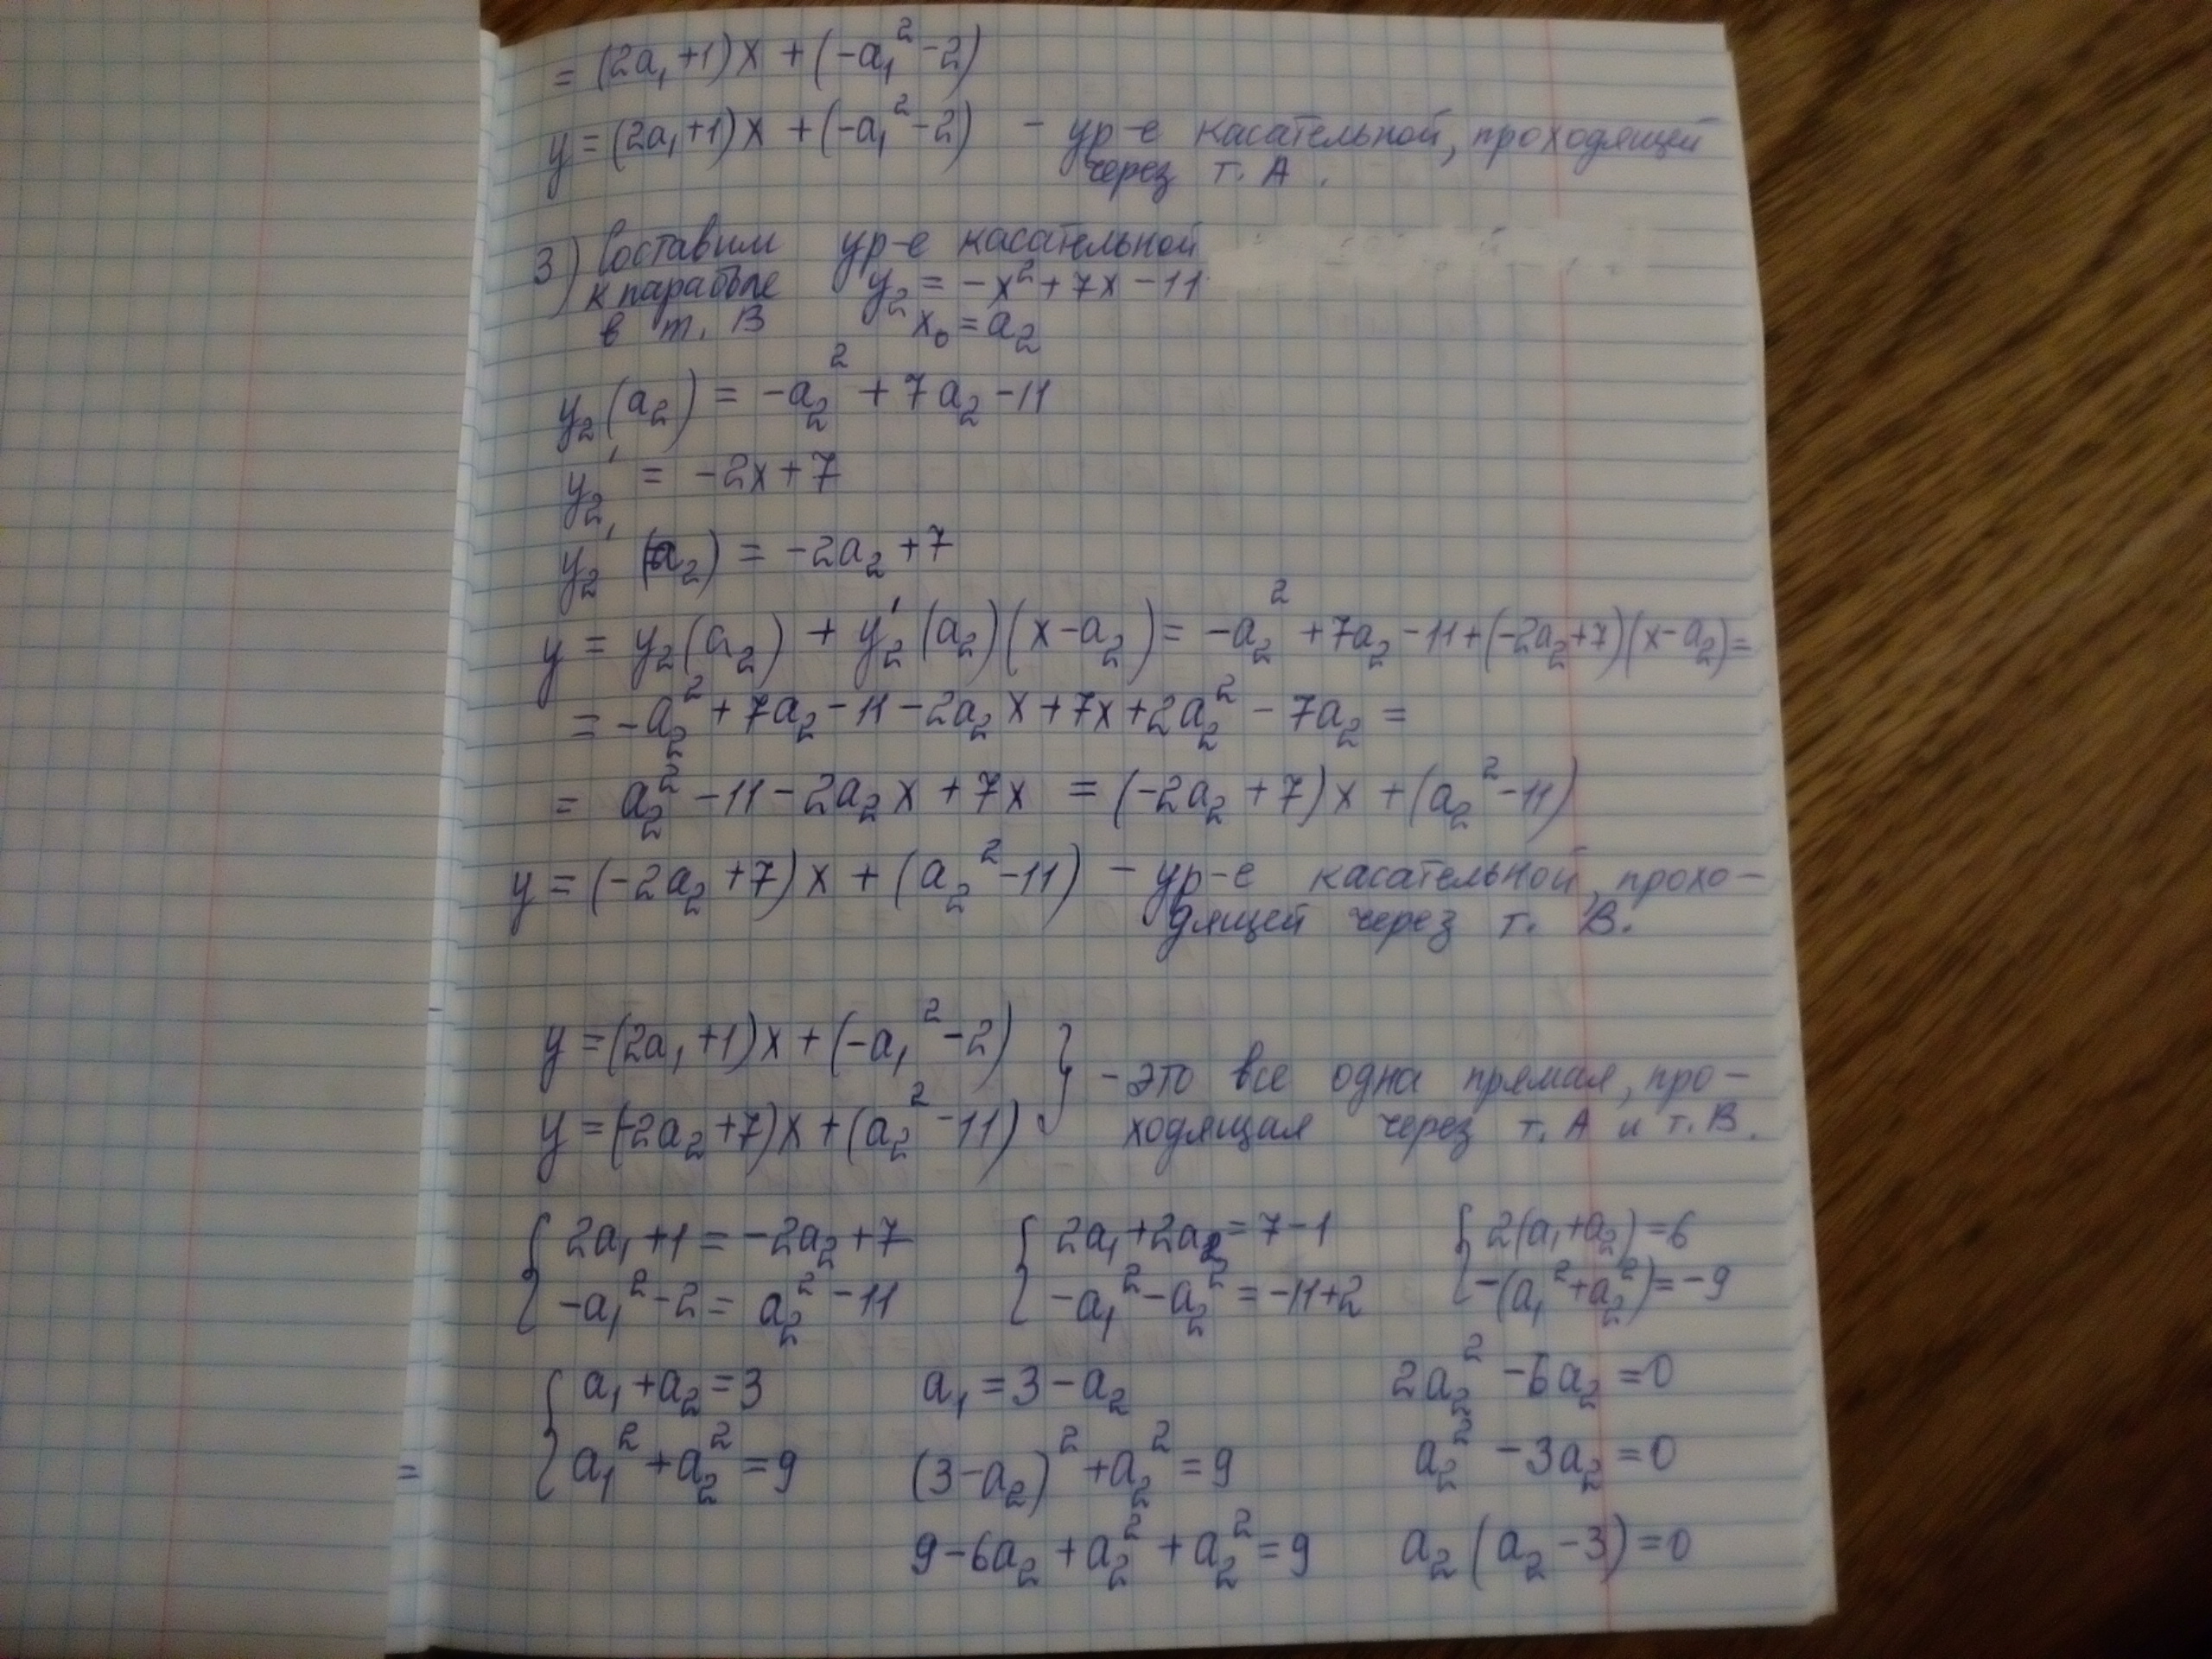 = (2a₁+1)x + (-a₁²-2)
y = (2a₁+1)x + (-a₁²-2) - ур-е касательной, проходящей
через т. А.
3) Составим ур-е касательной
к параболе y₂ = -x²+7x-11
в т. В x₀ = a₂
y₂(a₂) = -a₂² + 7a₂ - 11
y₂' = -2x+7
y₂'(a₂) = -2a₂+7
y = y₂(a₂) + y₂'(a₂)(x-a₂) = -a₂²+7a₂-11+(-2a₂+7)(x-a₂)=
= -a₂²+7a₂-11-2a₂x+7x+2a₂²-7a₂ =
= a₂²-11-2a₂x+7x = (-2a₂+7)x+(a₂²-11)
y = (-2a₂+7)x + (a₂²-11) - ур-е касательной, прохо-
дящей через т. В.
y = (2a₁+1)x+(-a₁²-2) } - это все одна прямая, про-
y = (-2a₂+7)x+(a₂²-11) ходящая через т. А и т. В.
{ 2a₁+1 = -2a₂+7 { 2a₁+2a₂ = 7-1 { 2(a₁+a₂)=6
-a₁²-2 = a₂²-11 -a₁²-a₂² = -11+2 -(a₁²+a₂²)=-9
{ a₁+a₂=3 a₁=3-a₂ 2a₂²-6a₂=0
= a₁²+a₂²=9 (3-a₂)²+a₂²=9 a₂²-3a₂=0
9-6a₂+a₂²+a₂²=9 a₂(a₂-3)=0